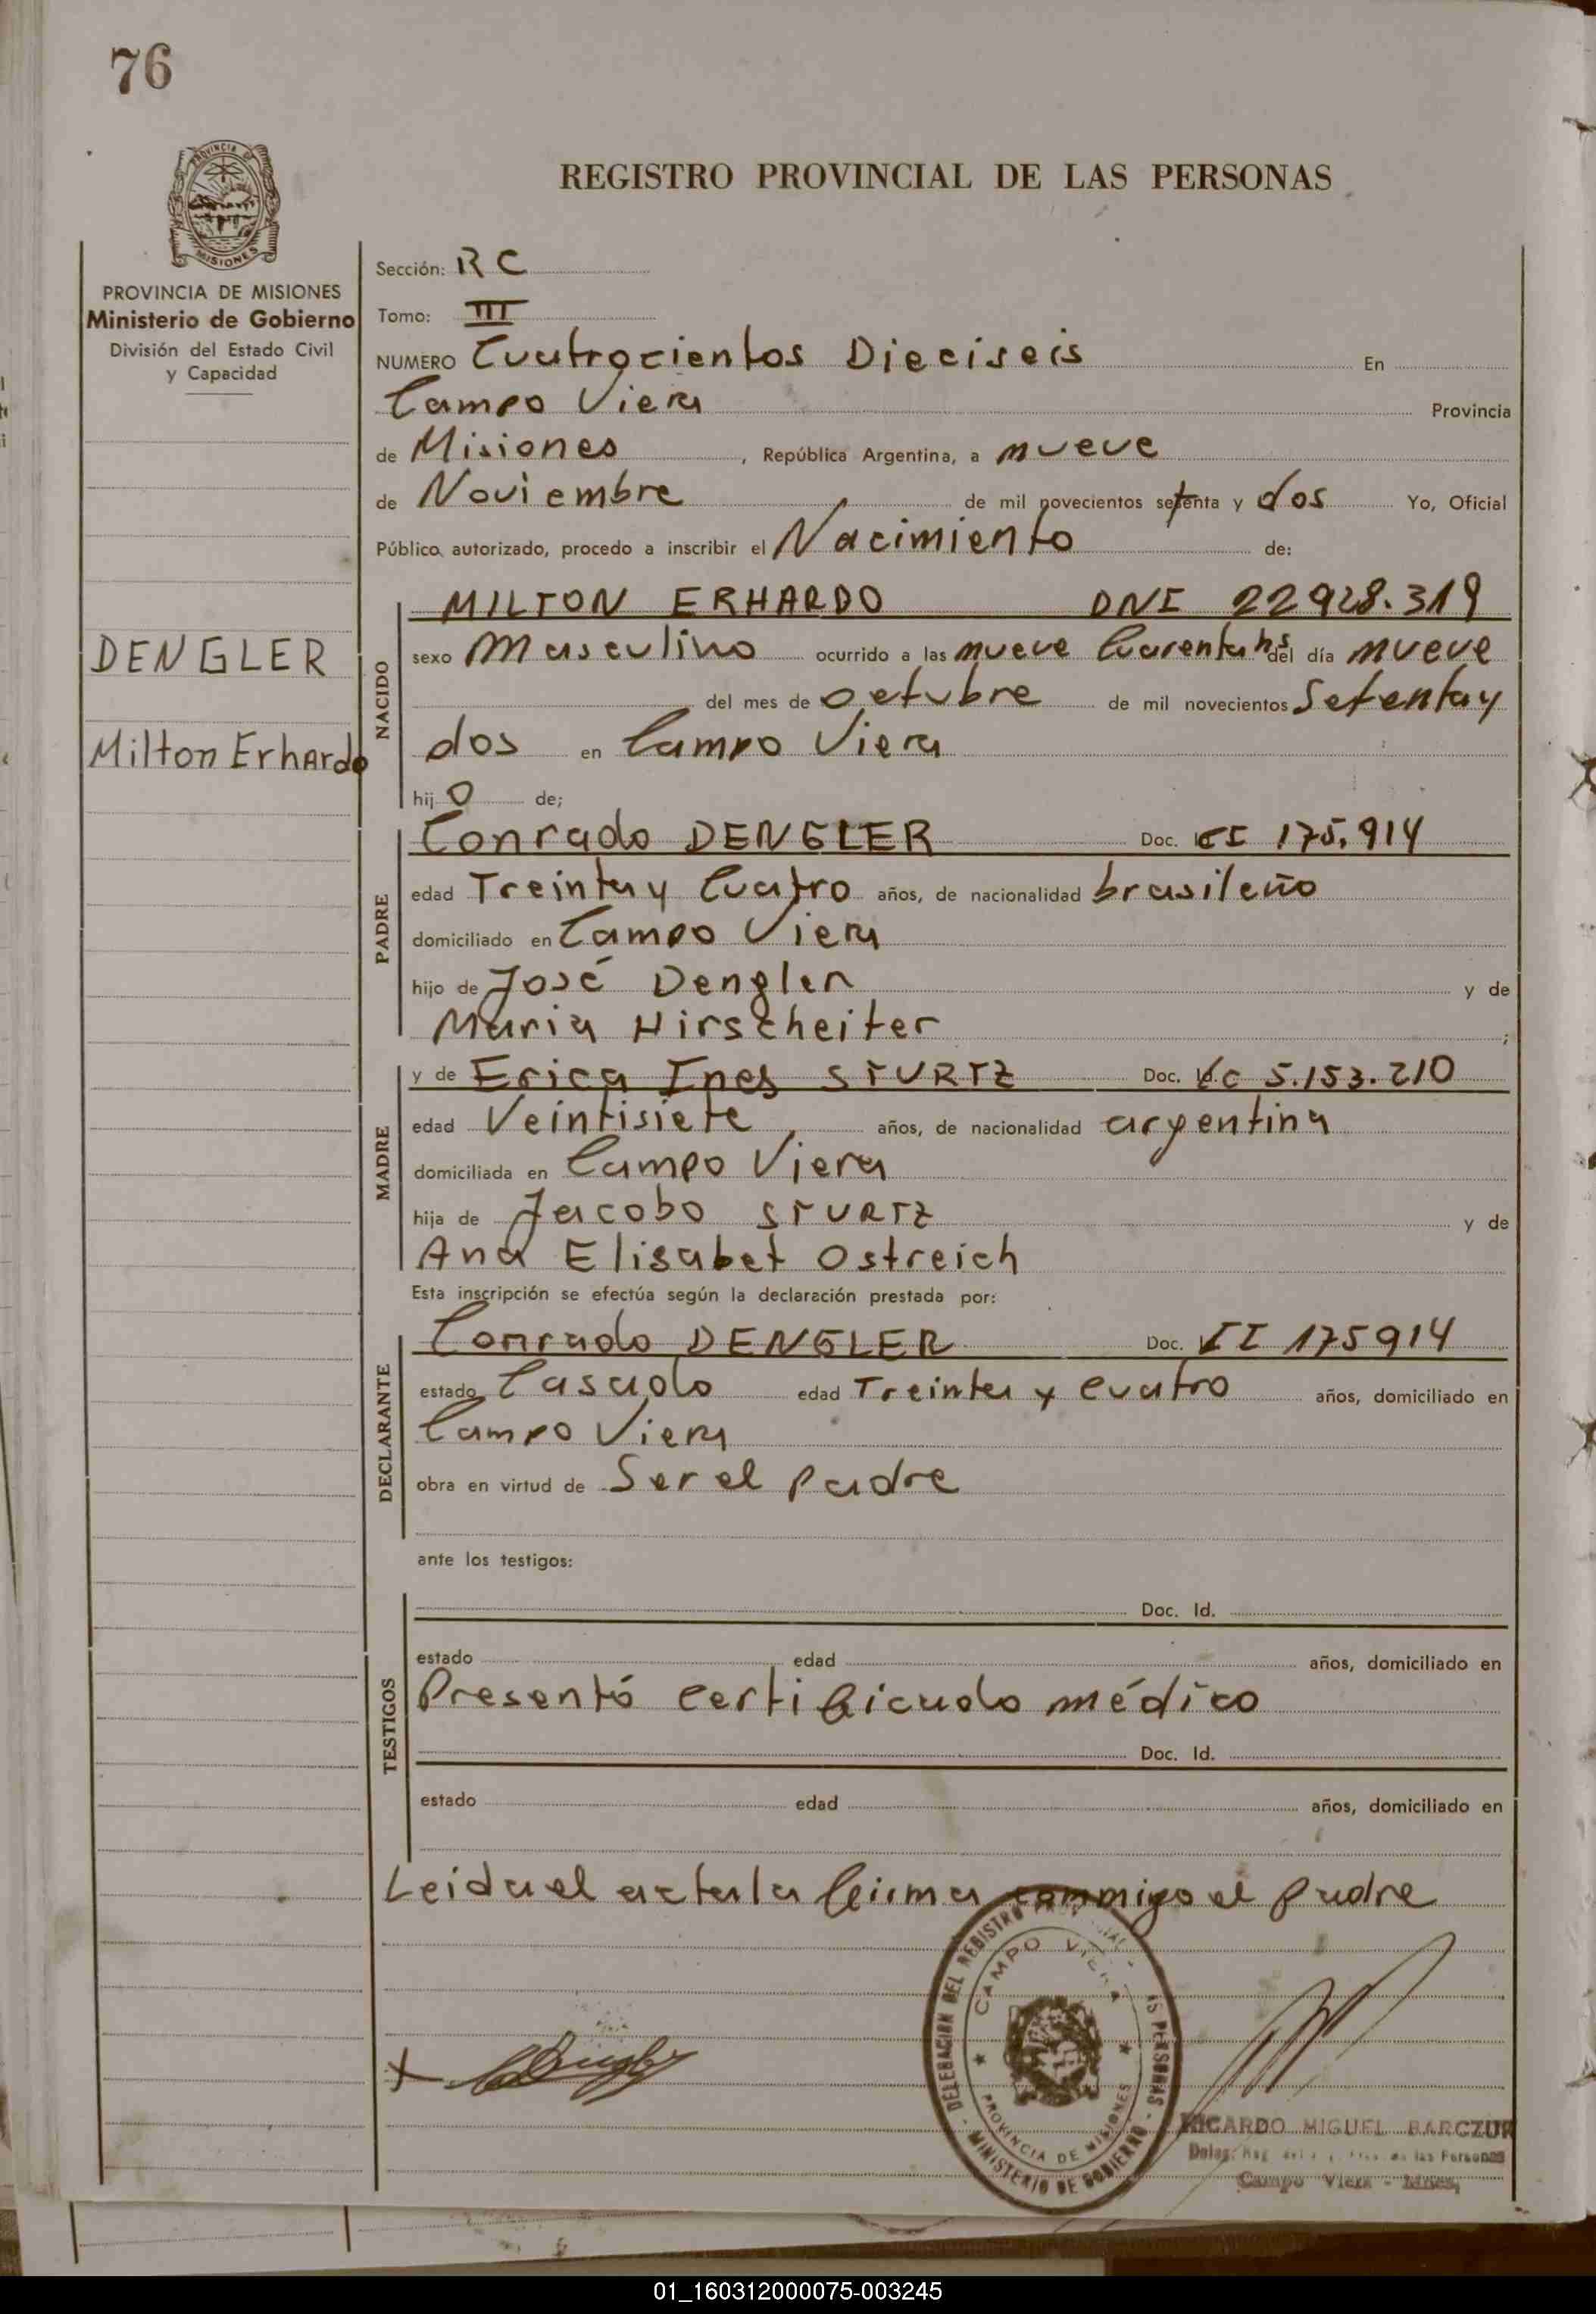 76
PROVINCIA DE
MISIONES
PROVINCIA DE MISIONES
Ministerio de Gobierno
División del Estado Civil
y Capacidad
DENGLER
Milton Erhardo
REGISTRO PROVINCIAL DE LAS PERSONAS
Sección: RC
Tomo: III
NUMERO Cuatrocientos Dieciseis En
Campo Viera Provincia
de Misiones, República Argentina, a nueve
de Noviembre de mil novecientos setenta y dos Yo, Oficial
Público autorizado, procedo a inscribir el Nacimiento de:
NACIDO
MILTON ERHARDO DNI 22928.319
sexo Masculino ocurrido a las nueve Cuarenta hs del día nueve
del mes de octubre de mil novecientos Setenta y
dos en Campo Viera
hijo de;
PADRE
Conrado DENGLER Doc. CI 175.914
edad Treinta y Cuatro años, de nacionalidad brasileño
domiciliado en Campo Viera
hijo de José Dengler y de
Maria Hirscheiter;
MADRE
y de Erica Ines STURTZ Doc. LC 5.153.210
edad Veintisiete años, de nacionalidad argentina
domiciliada en Campo Viera
hija de Jacobo STURTZ y de
Ana Elisabet Ostreich
Esta inscripción se efectúa según la declaración prestada por:
DECLARANTE
Conrado DENGLER Doc. CI 175914
estado Casado edad Treinta y cuatro años, domiciliado en
Campo Viera
obra en virtud de Ser el padre
ante los testigos:
TESTIGOS
Doc. Id.
estado edad años, domiciliado en
Presentó certificado médico
Doc. Id.
estado edad años, domiciliado en
Leida el acta la firma conmigo el padre
DELEGACION DEL REGISTRO PERSONAS
CAMPO VIERA
PROVINCIA DE MISIONES
MINISTERIO DE GOBIERNO
RICARDO MIGUEL BARCZUK
Deleg. de las Personas
Campo Viera - Mnes.
01_160312000075-003245